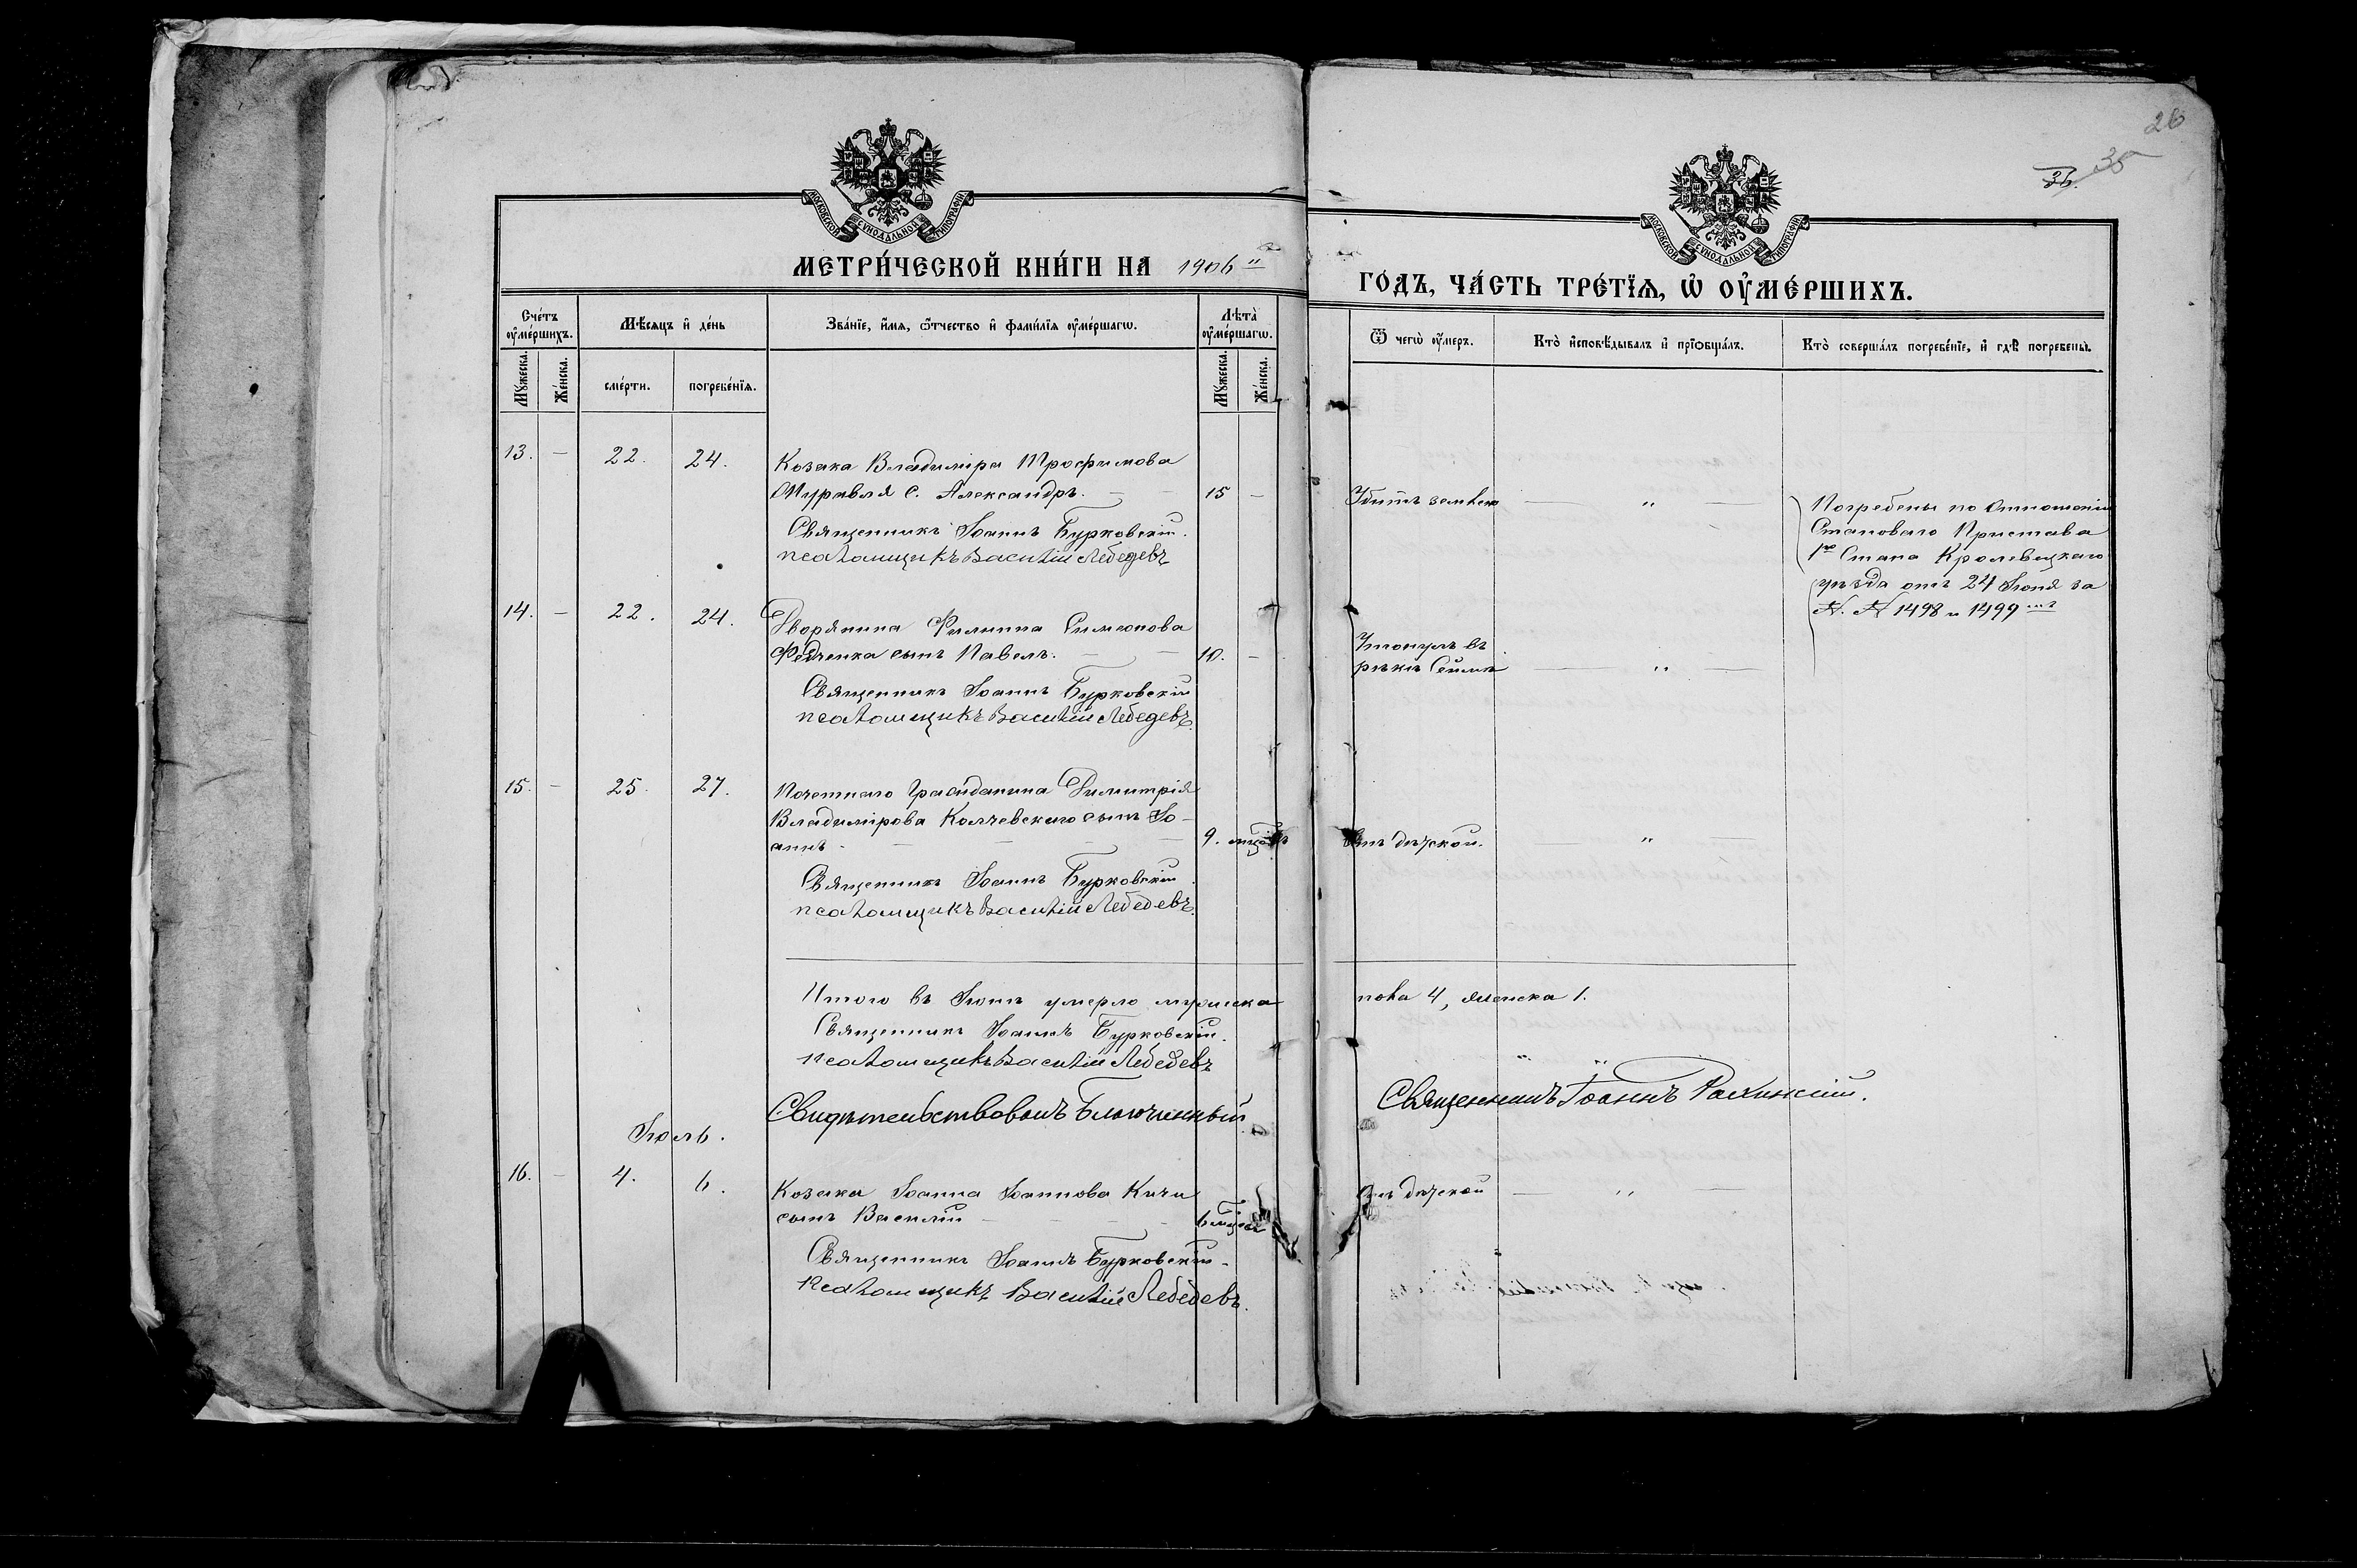 26
35
36.
МОСКОВСКОЙ СѴНОДАЛЬНОЙ ТИПОГРАФІИ
МОСКОВСКОЙ СѴНОДАЛЬНОЙ ТИПОГРАФІИ
МЕТРИ́ЧЕСКОЙ КНИ́ГИ НА 1906 й
ГО́ДЪ, ЧА́СТЬ ТРЕ́ТЇѦ, Ѡ҆ ОУ҆МЕ́РШИХЪ.
Сче́тъ оу҆ме́ршихъ.
Мꙋ́жеска.
Же́нска.
Мѣ́сяцъ и҆ де́нь
сме́рти.
погребе́нїѧ.
Зва́нїе, и҆́мя, ѻ҆́тчество и҆ фами́лїѧ оу҆ме́ршагѡ.
Лѣта̀ оу҆ме́ршагѡ.
Мꙋ́жеска.
Же́нска.
Ѿ чегѡ̀ оу҆́меръ.
Кто̀ и҆сповѣ́дывалъ и҆ прїѡбща́лъ.
Кто̀ соверша́лъ погребе́нїе, и҆ гдѣ̀ погребены̀.
13. — 22. 24. Козака Владиміра Трофимова
Журавля с. Александръ. — — 15 — Убитъ землею — „ —
Священникъ Іоаннъ Бурковскій.
псаломщикъ Василій Лебедевъ
Погребены по отношенію
Становаго Пристава
1го Стана Кролевецкаго
уѣзда отъ 24 Іюня за
N. N 1498 и 1499
14. — 22. 24. Дворянина Филиппа Симеонова
Федченка сынъ Павелъ. — — 10. — Утонулъ въ
рѣкѣ Сеймѣ — „ —
Священникъ Іоаннъ Бурковскій
псаломщикъ Василій Лебедевъ.
15. — 25. 27. Почетнаго Гражданина Димитрія
Владимірова Колчевскаго сынъ Іо-
аннъ — — — 9. — „ —
Священникъ Іоаннъ Бурковскій
псаломщикъ Василій Лебедевъ.
Итого въ Іюнѣ умерло мужеска
пола 4, женска 1.
Священникъ Іоаннъ Бурковскій.
псаломщикъ Василій Лебедевъ
Свидѣтельствовалъ Благочинный
Священникъ Іоаннъ
Іюль.
16. — 4. 6. Козака Іоанна Іоаннова Кичи
сынъ Василій — — — 6 — „ —
Священникъ Іоаннъ Бурковскій.
псаломщикъ Василій Лебедевъ.